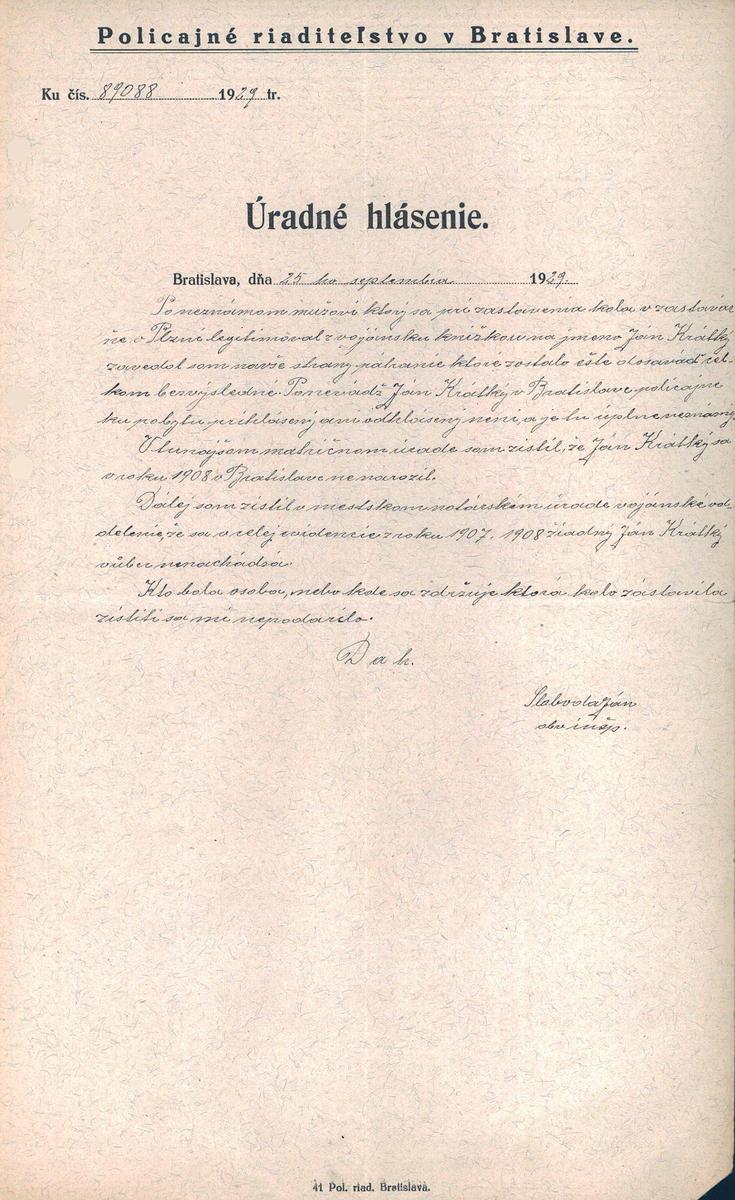 Policajné riaditeľstvo v Bratislave.
Ku čís. 89088 1929 tr.
Úradné hlásenie.
Bratislava, dňa 25 ho septembra 1929.
Po neznámom mužovi ktorý sa pri zastavenia kola v zastavár
ňe v Plzni legitimoval z vojánsku knižkou na jmeno Ján Krátký
zavedol som navše strany pátranie ktoré zostalo ešte dosavád cel-
kom bezvýsledné. Ponevádž Ján Krátký v Bratislave policajne
ku pobytu prihlásený ani odhlásený neni, a je tu úplne neznámy.
V tunajšom matričnom úrade som zistil, že Ján Krátký sa
v roku 1908 v Bratislave nenarozil.
Dálej som zistil v mestskom notárském úrade vojánské od-
delenie, že sa v celej evidencie z roku 1907, 1908 žiadný Ján Krátký
vúbec nenachádsá.
Kto bola osoba, nebo kde sa zdržuje ktorá kolo zástavila
zistiti sa mi nepodarilo.
D a h.
Sloboda Ján
obv. inšp.
41 Pol. riad. Bratislava.